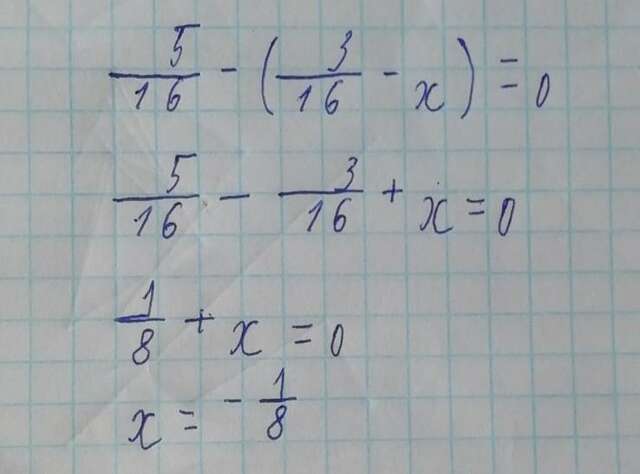 5/16 - (3/16 - x) = 0
5/16 - 3/16 + x = 0
1/8 + x = 0
x = - 1/8